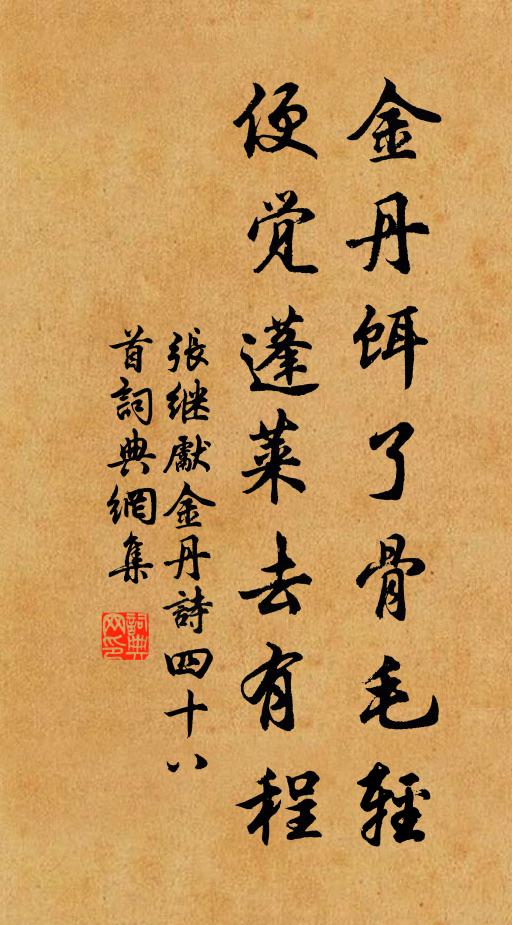 金丹餌了骨毛輕
便覚蓬萊去有程
張继獻金丹詩四十八
首詞典網集
詞典
网印